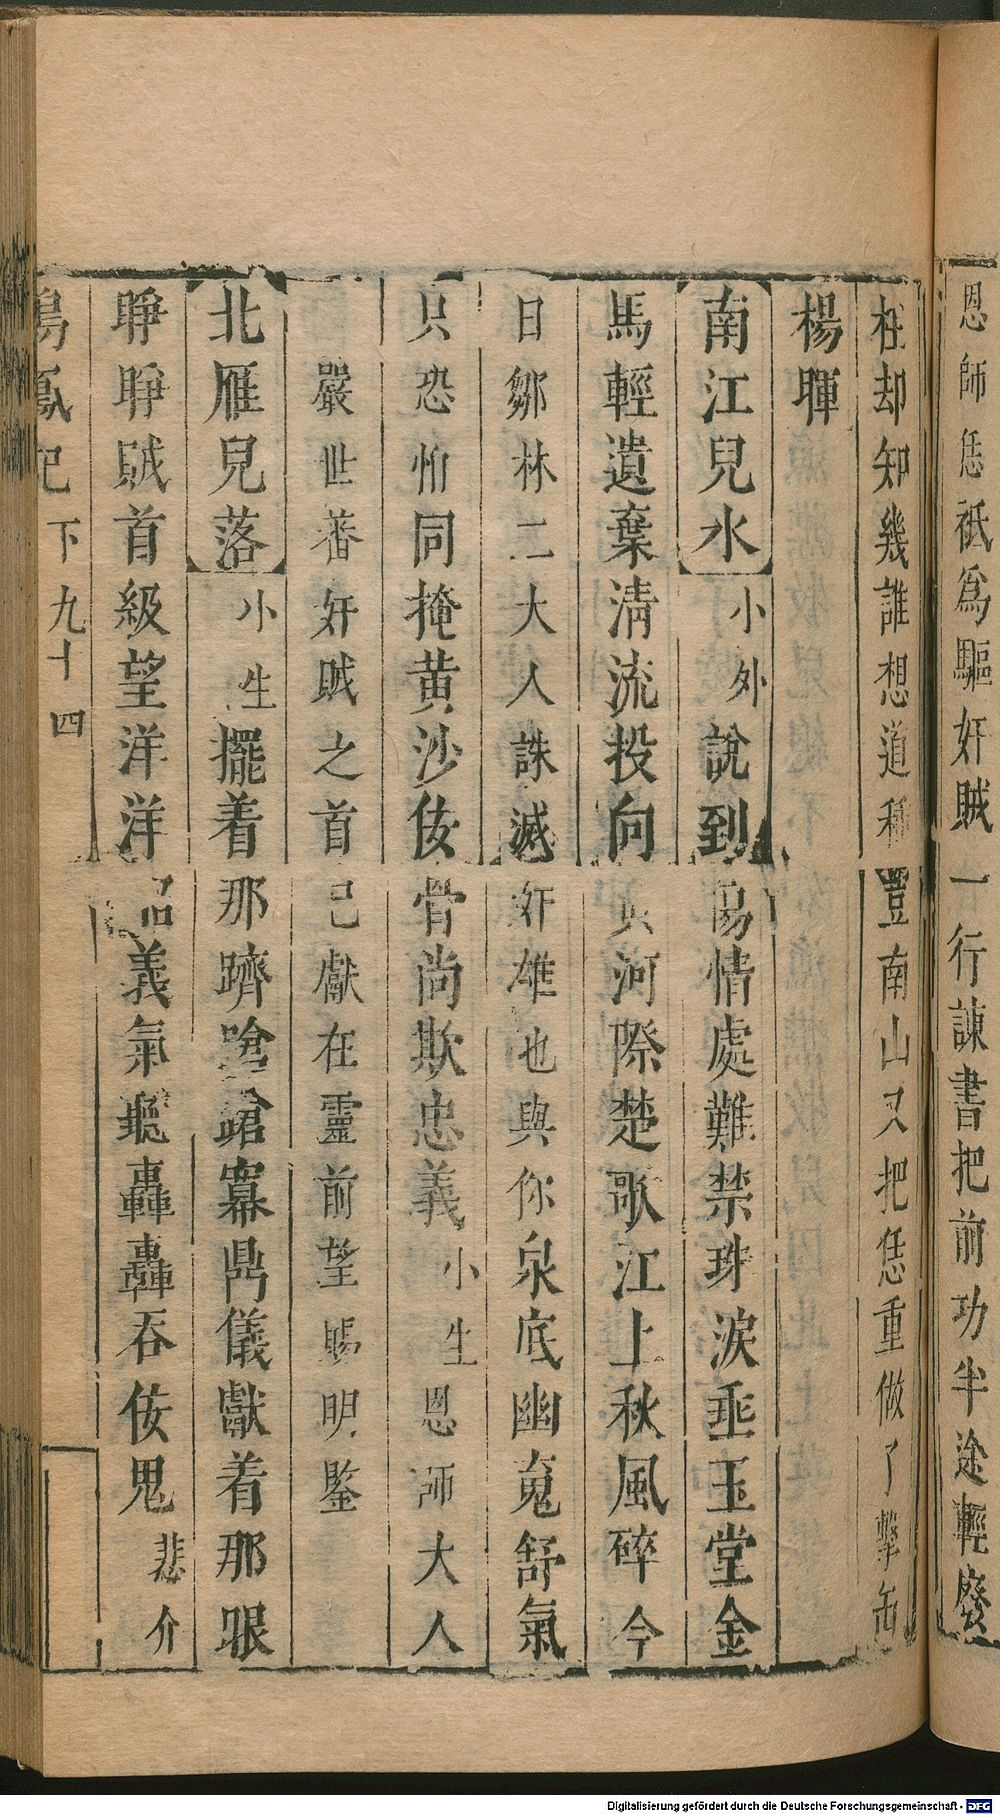 恩師恁祗為驅奸賊一行諫書把前功半途輕廢
枉却知幾誰想道種豆南山又把恁重做了擊缶
楊暉
南江兒水小外說到傷情處難禁珠淚垂玉堂金
馬輕遺棄清流投向黃河際楚歌江上秋風碎今
日鄒林二大人誅滅奸雄也與你泉底幽䰟舒氣
只恐怕同掩黃沙佞骨尚欺忠義小生恩師大人
嚴世蕃奸賊之首已獻在靈前望賜明鑒
北雁兒落小生擺着那躋嗆蹌冪鼎儀獻着那眼
睜睜賊首級望洋洋義氣轟轟吞佞鬼悲介
鳴鳳記 下 九十四
Digitalisierung gefördert durch die Deutsche Forschungsgemeinschaft - DFG